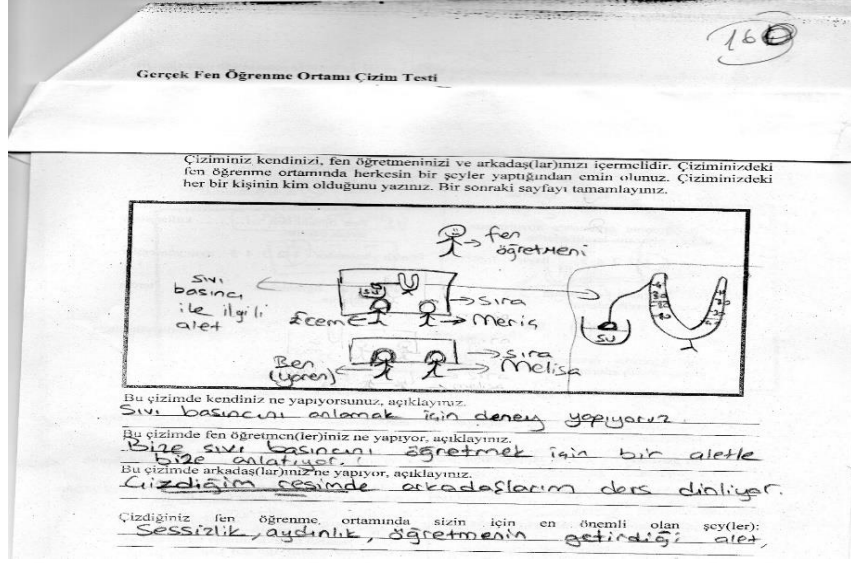 160
Gerçek Fen Öğrenme Ortamı Çizim Testi
Çiziminiz kendinizi, fen öğretmeninizi ve arkadaş(lar)ınızı içermelidir. Çiziminizdeki
fen öğrenme ortamında herkesin bir şeyler yaptığından emin olunuz. Çiziminizdeki
her bir kişinin kim olduğunu yazınız. Bir sonraki sayfayı tamamlayınız.
fen
öğretmeni
sıvı
basıncı
ile ilgili
alet
su
sıra
Ecem
Meriç
su
Ben
(Yaren)
sıra
Melisa
Bu çizimde kendiniz ne yapıyorsunuz, açıklayınız.
Sıvı basıncını anlamak için deney yapıyoruz
Bu çizimde fen öğretmen(ler)iniz ne yapıyor, açıklayınız.
Bize sıvı basıncını öğretmek için bir aletle
bize anlatıyor.
Bu çizimde arkadaş(lar)ınız ne yapıyor, açıklayınız.
Çizdiğim resimde arkadaşlarım ders dinliyor.
Çizdiğiniz fen öğrenme, ortamında sizin için en önemli olan şey(ler):
Sessizlik, aydınlık, öğretmenin getirdiği alet,